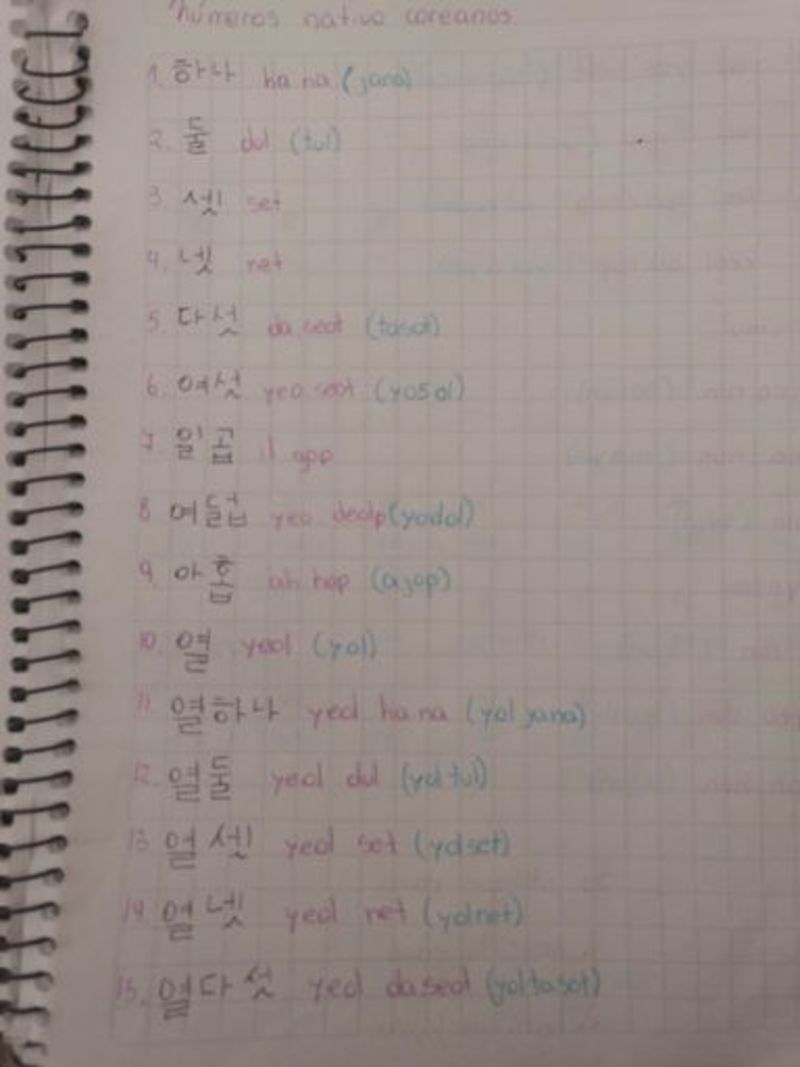 números nativo coreanos.
1. 하나 ha na (jana)
2. 둘 dul (tul)
3. 셋 set
4. 넷 net
5. 다섯 da seot (tasot)
6. 여섯 yeo seot (yosot)
7. 일곱 il gop
8 여덟 yeo deolp (yodol)
9. 아홉 ah hop (a jop)
10. 열 yeol (yol)
11. 열하나 yeol ha na (yol jana)
12. 열둘 yeol dul (yol tul)
13. 열셋 yeol set (yolset)
14. 열넷 yeol net (yolnet)
15. 열다섯 yeol daseot (yoltasot)